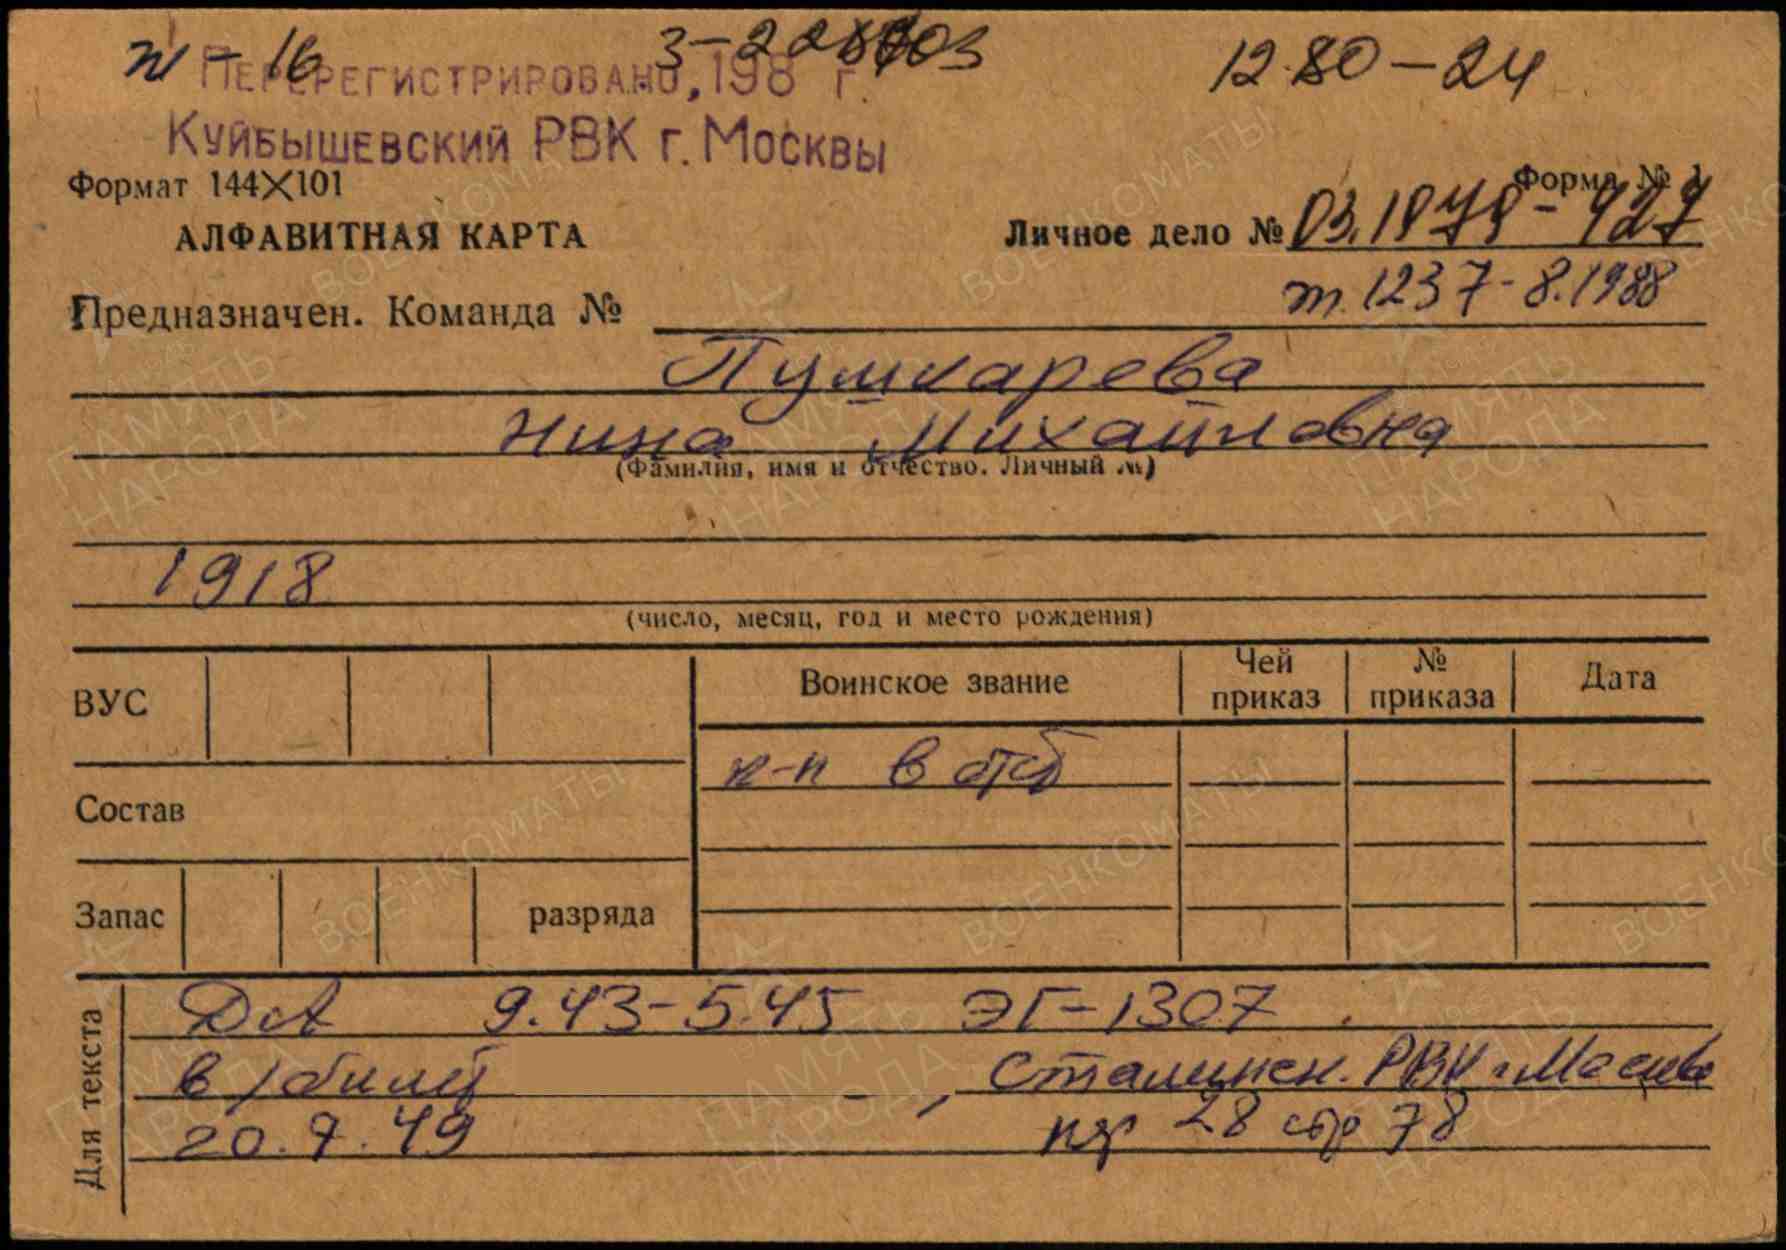 ж-16 3-2 12.80-24
ПЕРЕРЕГИСТРИРОВАНО, 198 г.
КУЙБЫШЕВСКИЙ РВК г. МОСКВЫ
Формат 144X101 Форма № 1
АЛФАВИТНАЯ КАРТА Личное дело № 03.1878-927
Предназначен. Команда № т.1237-8.1988
Пушкарева
Нина Михайловна
(Фамилия, имя и отчество. Личный №)
1918
(число, месяц, год и место рождения)
ВУС Воинское звание Чей приказ № приказа Дата
в отб
Состав
Запас разряда
Для текста
ДА 9.43-5.45 ЭГ-1307
в/билет , Сталинск. РВК г. Москвы
20.7.49 кар 28 стр 78
ПАМЯТЬ НАРОДА
ВОЕНКОМАТЫ